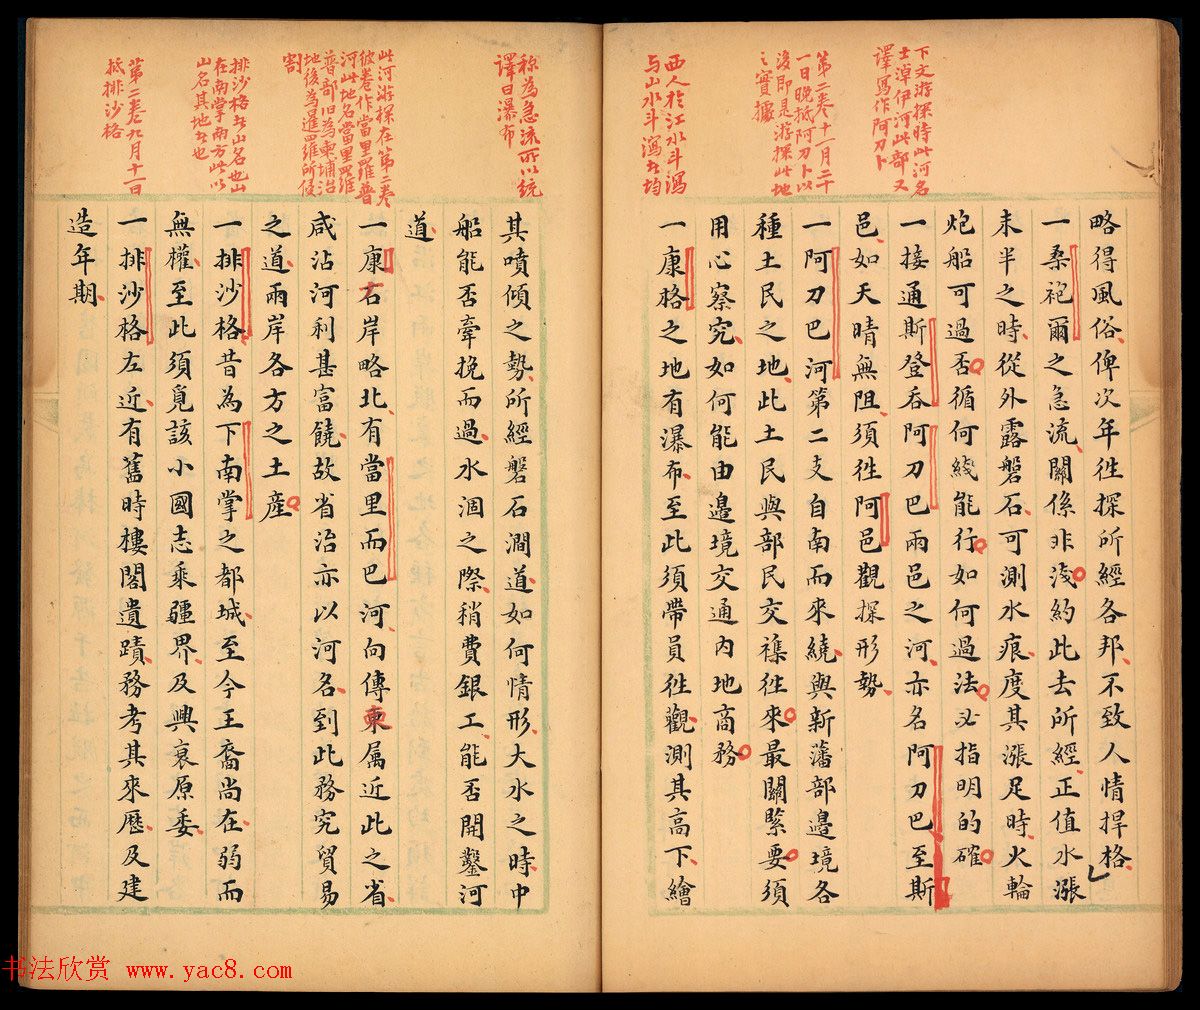 下文游探時此河名
士淖伊河此部又
譯寫作阿刀卜
第二卷十一月二十
一日晚抵阿刀卜以
後即是游探此地
之實據
西人於江水斗瀉
与山水斗瀉者均
略得風俗俾次年往探所經各邦不致人情捍格
一桑袍爾之急流關係非淺約此去所經正值水漲
未半之時從外露磐石可測水痕度其漲足時火輪
炮船可過否循何綫能行如何過法必指明的確
一接通斯登吞阿刀巴兩邑之河亦名阿刀巴至斯
邑如天晴無阻須往阿邑觀探形勢
一阿刀巴河第二支自南而來繞與新藩部邊境各
種土民之地此土民與部民交襍往來最關緊要須
用心察究如何能由邊境交通內地商務
一康格之地有瀑布至此須帶員往觀測其高下繪
稱為急流所以統
譯曰瀑布
此河游探在第二卷
彼卷作當里羅普
河此地名當里羅
普部旧為柬埔治
地後為暹羅所侵
割
排沙格者山名也山
在南掌南方此以
山名其地者也
第二卷九月十一日
抵排沙格
其噴傾之勢所經磐石澗道如何情形大水之時中
船能否牽挽而過水涸之際稍費銀工能否開鑿河
道
一康右岸略北有當里而巴河向傳東属近此之省
咸沾河利甚富饒故省治亦以河名到此務究貿易
之道兩岸各方之土産
一排沙格昔為下南掌之都城至今王裔尚在弱而
無權至此須覓該小國志乘疆界及興衰原委
一排沙格左近有舊時樓閣遺蹟務考其來歷及建
造年期
书法欣赏 www.yac8.com